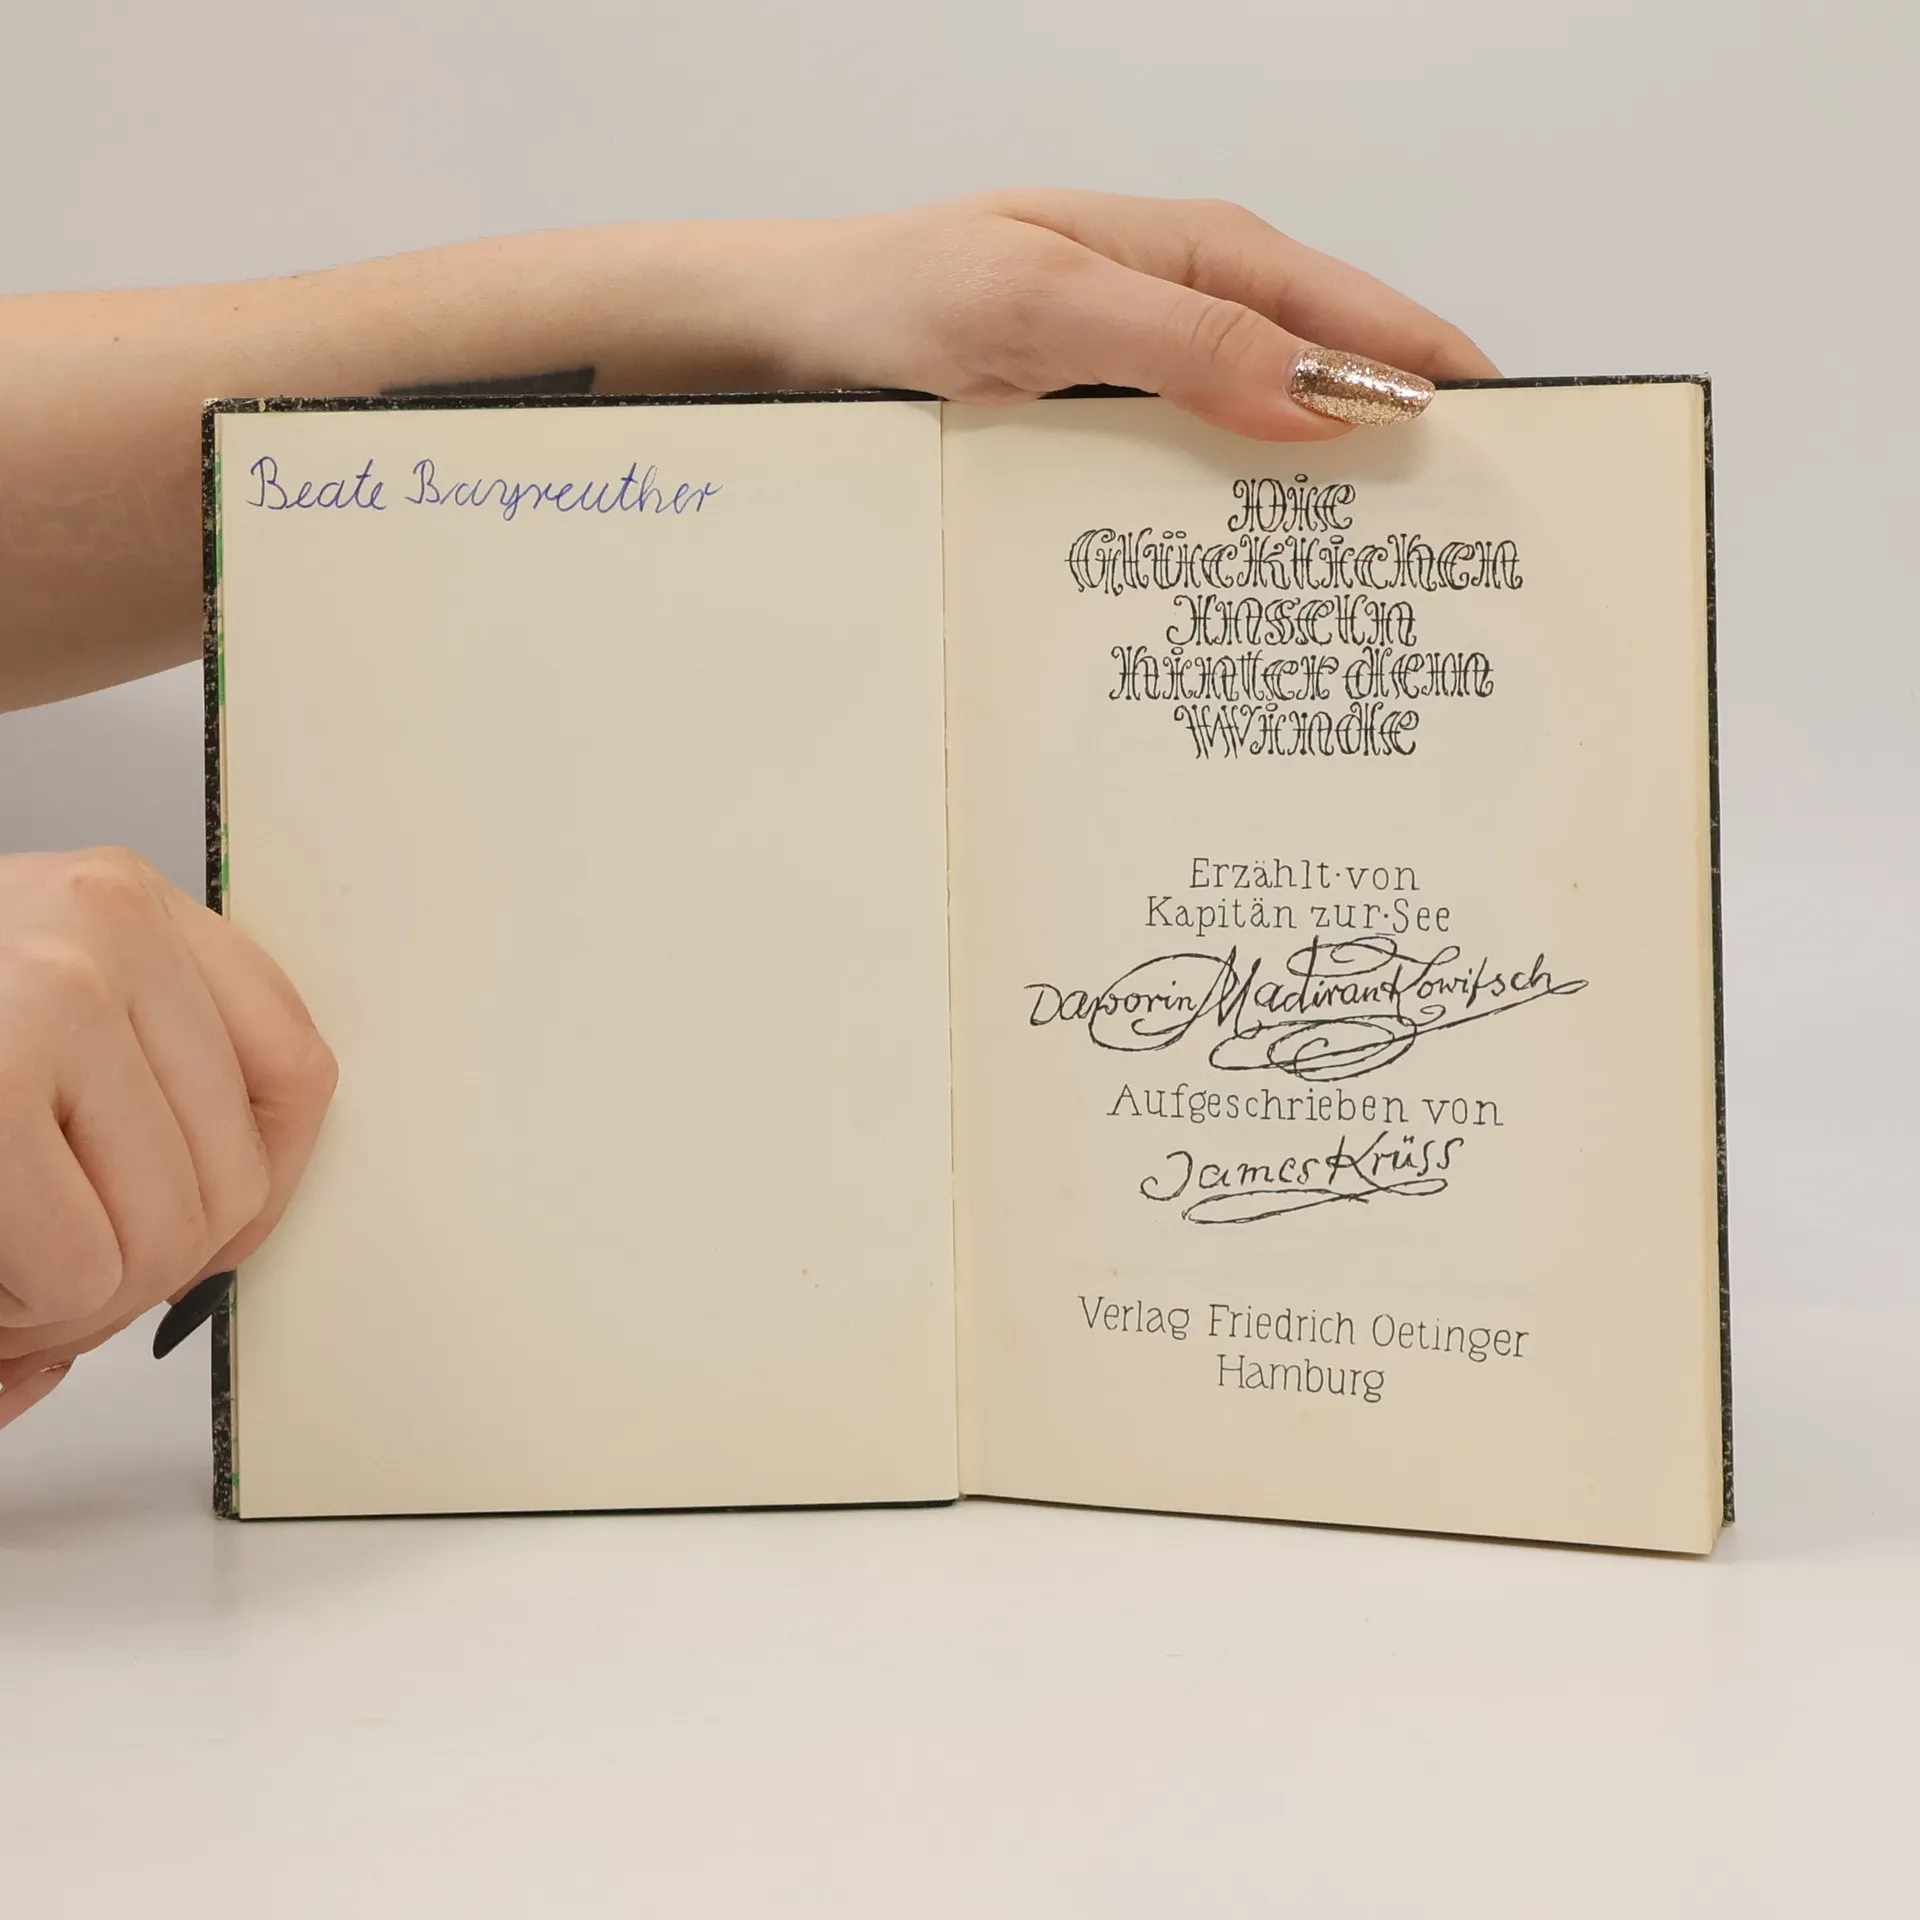 Beate Bayreuther
Die
Glücklichen
Inseln
hinter dem
Winde
Erzählt·von
Kapitän zur·See
Daworin Madirankowitsch
Aufgeschrieben von
James Krüss
Verlag Friedrich Oetinger
Hamburg